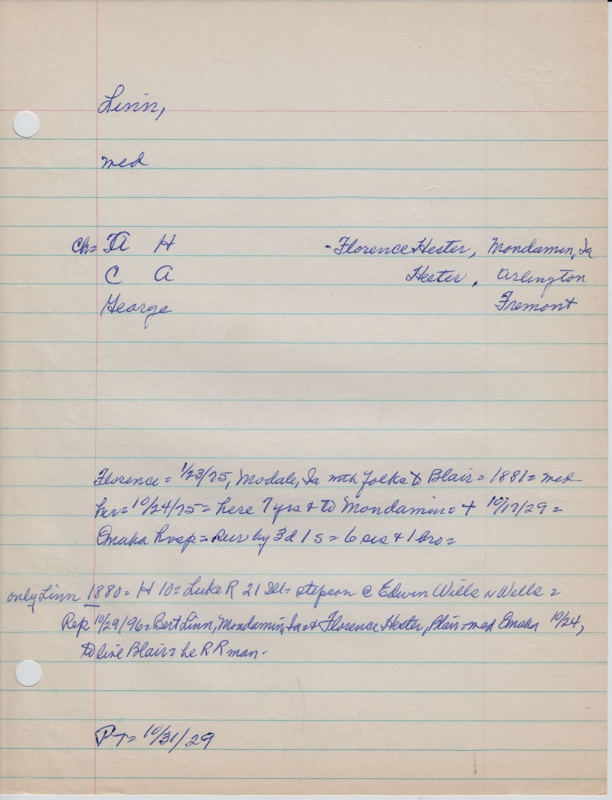 Linn,
med
Ch= DA H -Florence Hester, Mondamin, Ia
C A Hester, Arlington
George Fremont
Florence = 1/23/75, Modale, Ia with folks to Blair = 1881 = med
her = 10/24/75 = here 7 yrs & to Mondamin = + 10/17/29 =
Omaha hosp = sur by 3 d 1 s = 6 sis & 1 bro =
only Linn 1880 = H 10 = Luke R 21 Ill = stepson @ Edwin Wells w Wells =
Rep 10/29/96 = Bert Linn, Mondamin, Ia = & Florence Hester, Blair = med Omaha 10/24,
to live Blair = he R R man -
PT = 10/31/29